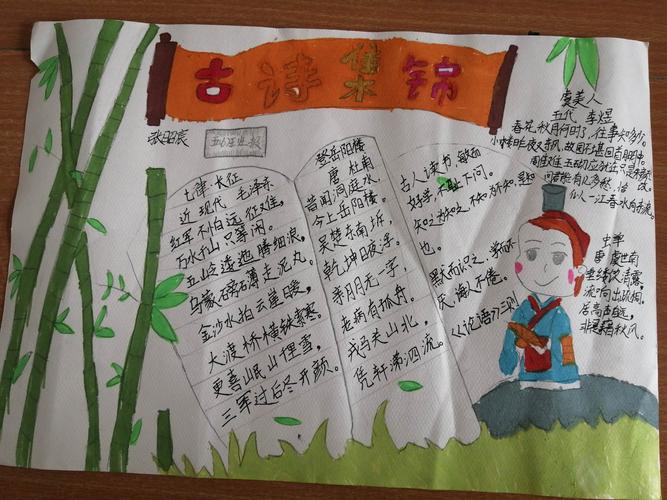 古诗集锦
张昭宸
七律 长征
近现代 毛泽东
红军不怕远征难，
万水千山只等闲。
五岭逶迤腾细浪，
乌蒙磅礴走泥丸。
金沙水拍云崖暖，
大渡桥横铁索寒。
更喜岷山千里雪，
三军过后尽开颜。
登岳阳楼
唐 杜甫
昔闻洞庭水，
今上岳阳楼。
吴楚东南坼，
乾坤日夜浮。
亲朋无一字，
老病有孤舟。
戎马关山北，
凭轩涕泗流。
古人读书，敏而
好学，不耻下问。
知之为知之，不知为不知，是知
也。
默而识之，学而不
厌，诲人不倦。
《论语》三则
虞美人
五代 李煜
春花秋月何时了，往事知多少。
小楼昨夜又东风，故国不堪回首月明中。
雕栏玉砌应犹在，只是朱颜改。
问君能有几多愁，恰
似一江春水向东流。
虫单
唐 虞世南
垂緌饮清露，
流响出疏桐。
居高声自远，
非是藉秋风。